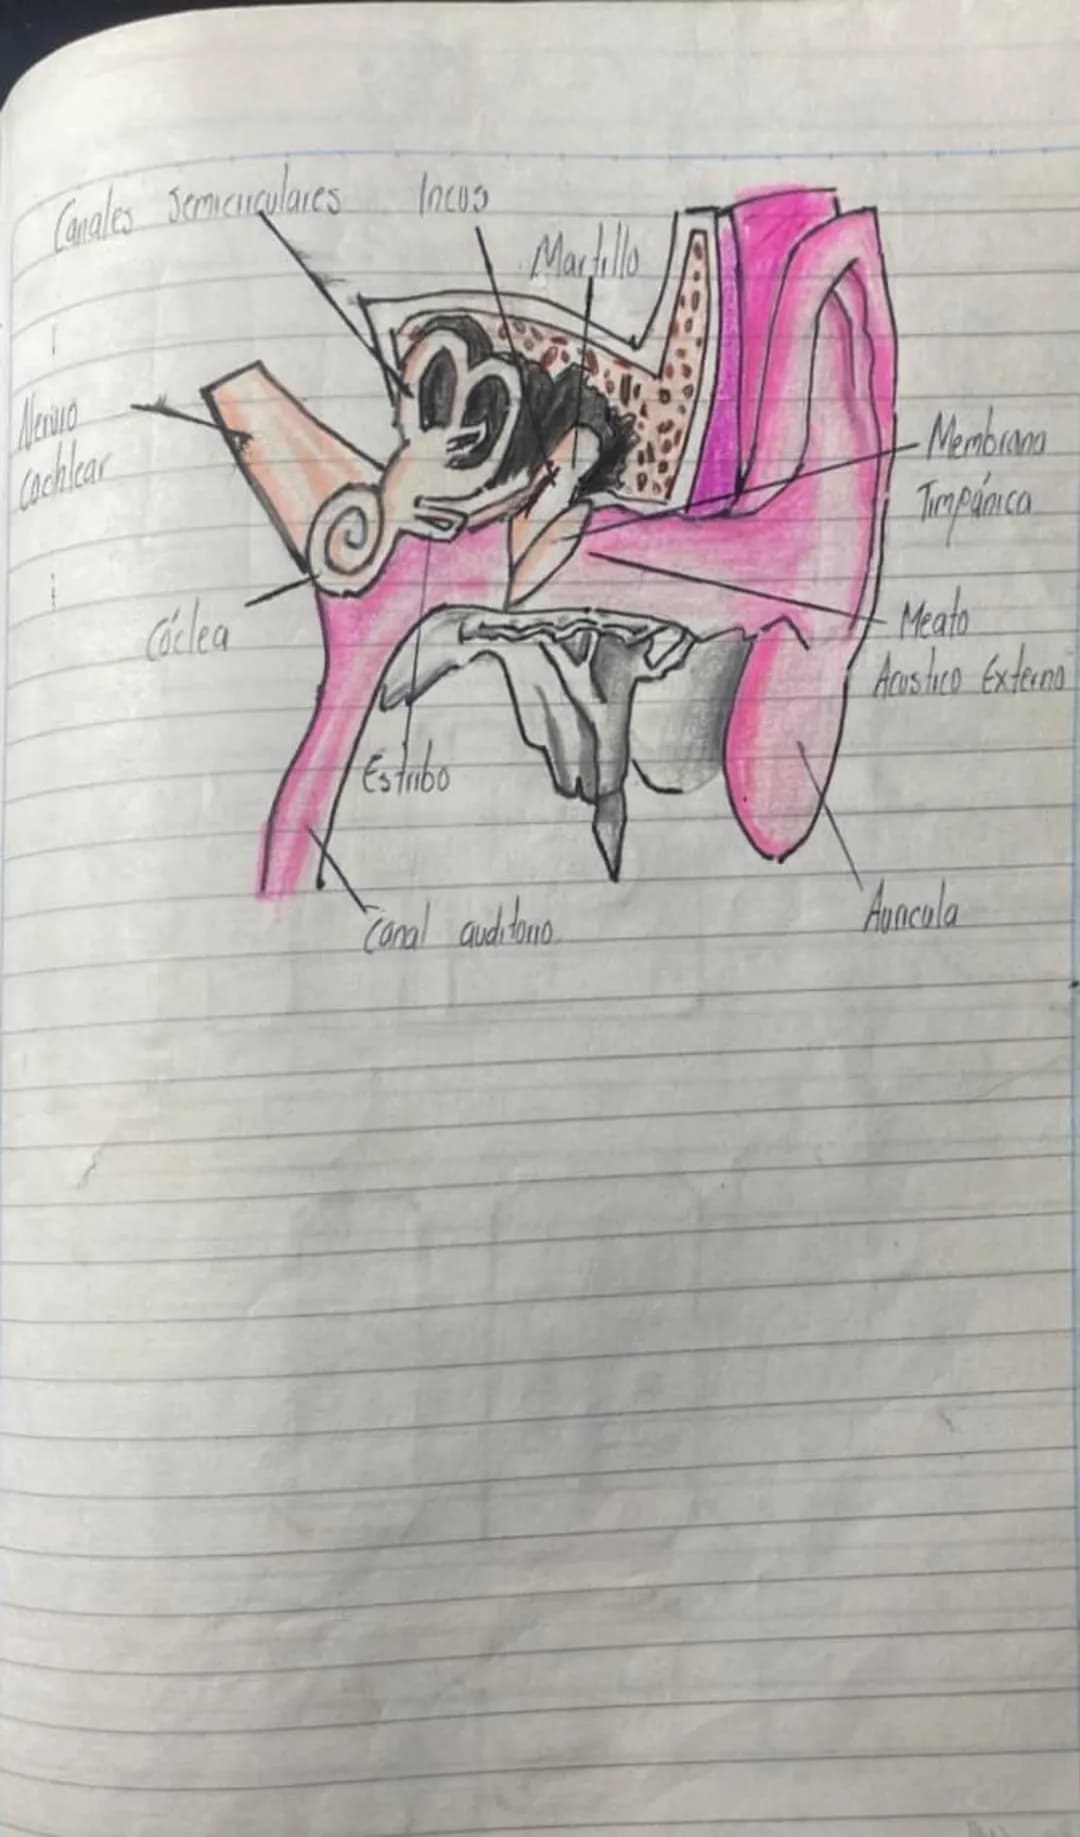 Canales Semicirculares
Incus
Martillo
Nervio
Cochlear
Membrana
Timpánica
Cóclea
Meato
Acustico Externo
Estribo
Canal auditorio
Auricula